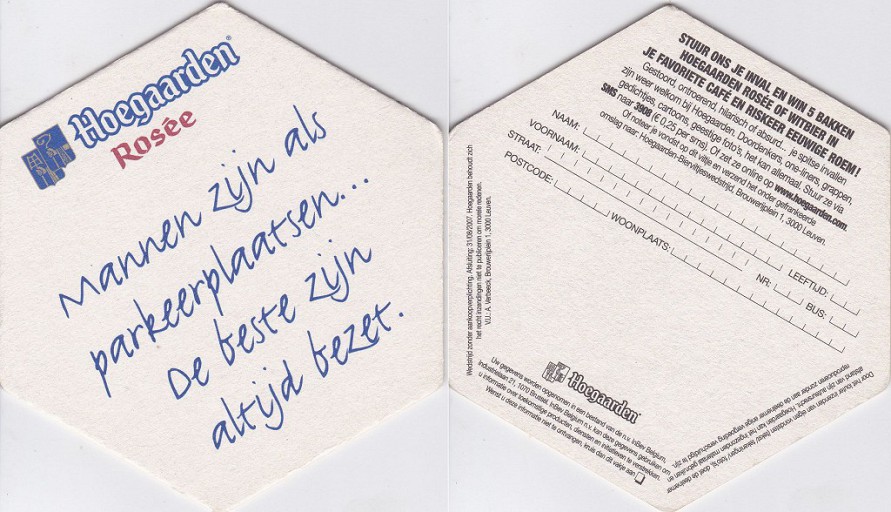 Hoegaarden®
Rosée
Mannen zijn als
parkeerplaatsen...
De beste zijn
altijd bezet.
STUUR ONS JE INVAL EN WIN 5 BAKKEN
HOEGAARDEN ROSÉE OF WITBIER IN
JE FAVORIETE CAFÉ EN RISKEER EEUWIGE ROEM!
Gestoord, ontroerend, hilarisch of absurd... je spitse invallen
zijn weer welkom bij Hoegaarden. Doordenkers, one-liners, grappen,
gedichtjes, cartoons, geestige foto's, het kan allemaal. Stuur ze via
SMS naar 3908 (€ 0,25 per sms). Of zet ze online op www.hoegaarden.com.
Of noteer je vondst op dit viltje en verzend het onder gefrankeerde
omslag naar: Hoegaarden-Bierviltjeswedstrijd, Brouwerijplein 1, 3000 Leuven.
NAAM:
VOORNAAM: LEEFTIJD:
STRAAT: NR: BUS:
POSTCODE: WOONPLAATS:
Wedstrijd zonder aankoopverplichting. Afsluiting: 31/08/2007. Hoegaarden behoudt zich
het recht inzendingen niet te publiceren om morele redenen.
V.U.: A. Verbeeck, Brouwerijplein 1, 3000 Leuven.
Hoegaarden®
Uw gegevens worden opgenomen in een bestand van de n.v. InBev Belgium,
Industrielaan 21, 1070 Brussel. InBev Belgium n.v. kan deze gegevens gebruiken om
u informatie over toekomstige producten, diensten en initiatieven te verstrekken.
Wenst u deze informatie niet te ontvangen, kruis dan dit vakje aan
Door het louter inzenden van eigen vondsten (tekst/ tekeningen/ foto's), doet de deelnemer
afstand van zijn auteursrecht. Hoegaarden kan het ingezonden materiaal gebruiken en
reproduceren zonder de aan deelnemer enige vergoeding verschuldigd te zijn.